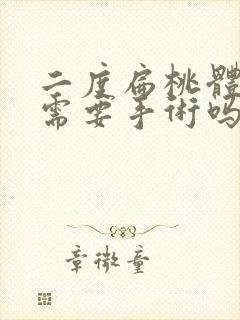 二度扁桃體
需要手術嗎
章微童